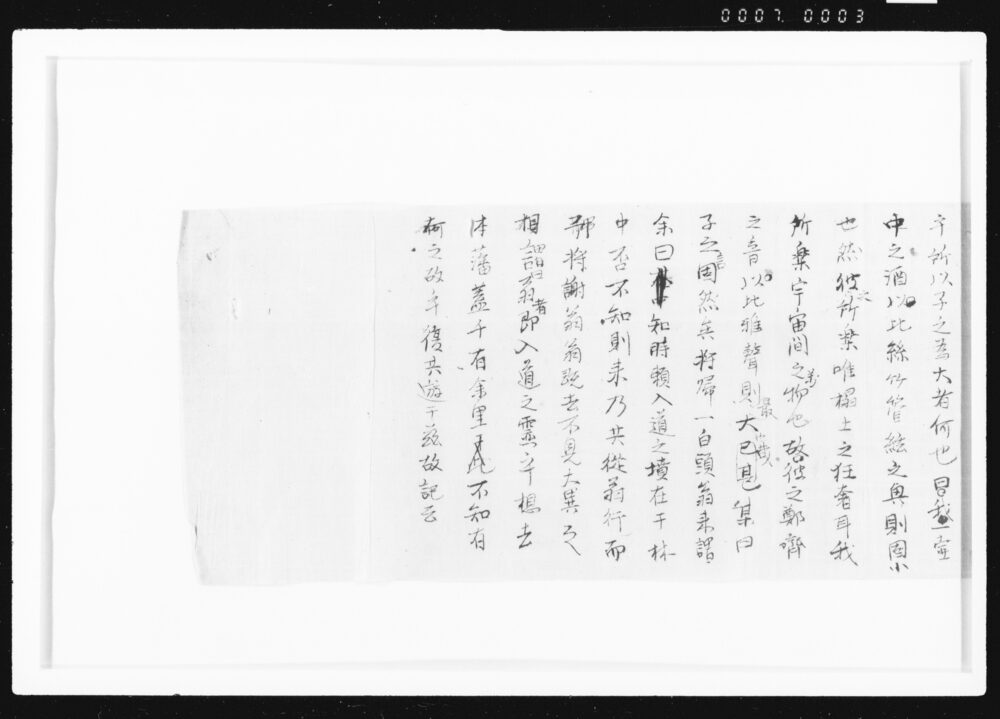 0007 0003
乎所以子之為大者何也曰我一壺
中之酒以比絲竹管絃之奥則固小
也然彼之所楽唯榻上之狂奢耳我
所楽宇宙間之萬物也故彼之鄭齊
之音以比雅聲則大已甚某曰
子之言固然矣将帰一白頭翁来謂
余曰知時頼入道之墳在于林
中否不知則来乃共從翁行而
都将謝翁翁既去不見大異之
相謂曰翁者即入道之霊乎想去
体藩蓋千有余里不知有
何之故乎復共遊于茲故記云